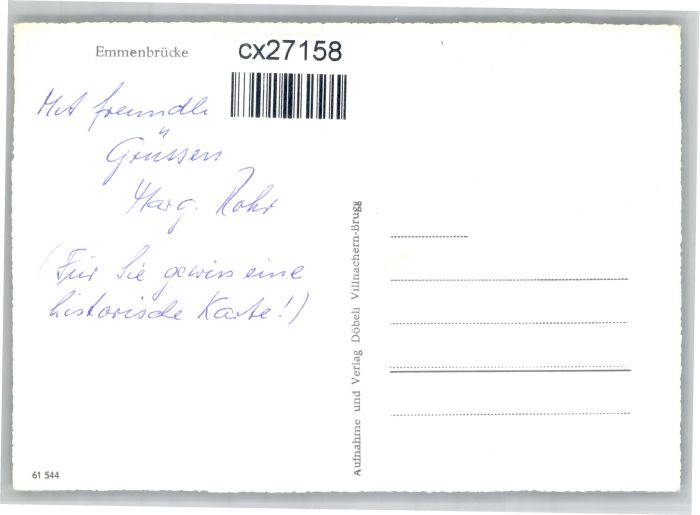 Emmenbrücke
cx27158
Mit freundl.
Grüssen
Marg. Rohr
(Für Sie gewiss eine
historische Karte!)
Aufnahme und Verlag Döbeli Villnachern-Brugg
61 544